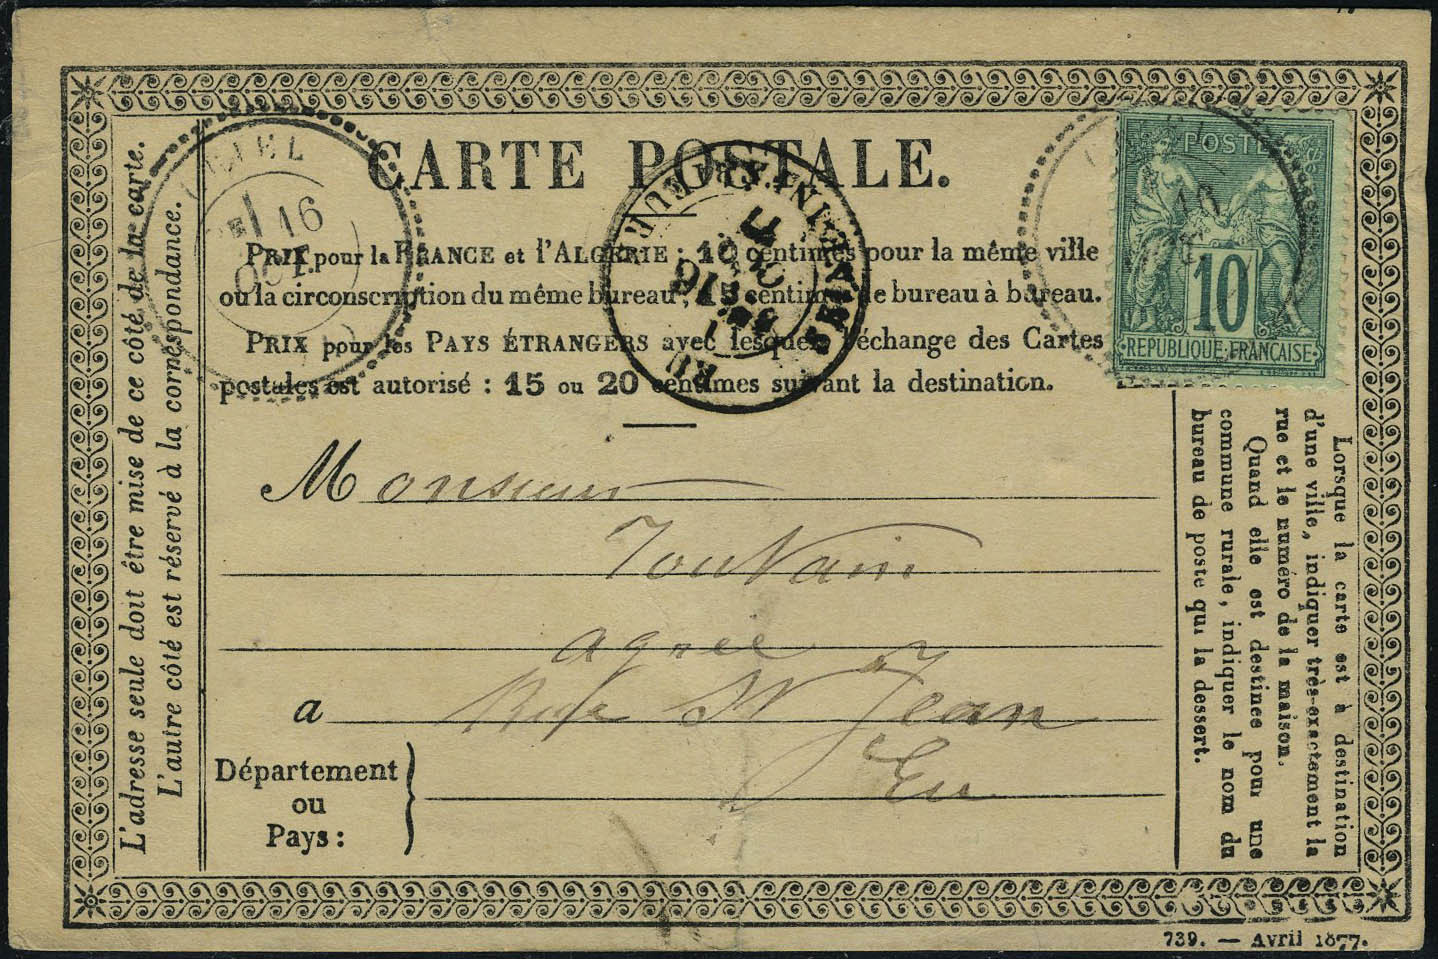 CARTE POSTALE.
PRIX pour la FRANCE et l'ALGERIE : 10 centimes pour la même ville
ou la circonscription du même bureau ; 15 centimes de bureau à bureau.
PRIX pour les PAYS ÉTRANGERS avec lesquels l'échange des Cartes
postales est autorisé : 15 ou 20 centimes suivant la destination.
Monsieur
Toutain
agréé
a Rue St Jean
Eu
Département
ou
Pays :
L'adresse seule doit être mise de ce côté de la carte.
L'autre côté est réservé à la correspondance.
Lorsque la carte est à destination
d'une ville, indiquer très-exactement la
rue et le numéro de la maison.
Quand elle est destinée pour une
commune rurale, indiquer le nom du
bureau de poste qui la dessert.
POSTE
10
REPUBLIQUE FRANCAISE
16
OCT.
16
EU
SEINE
17
OCT
739. — Avril 1877.